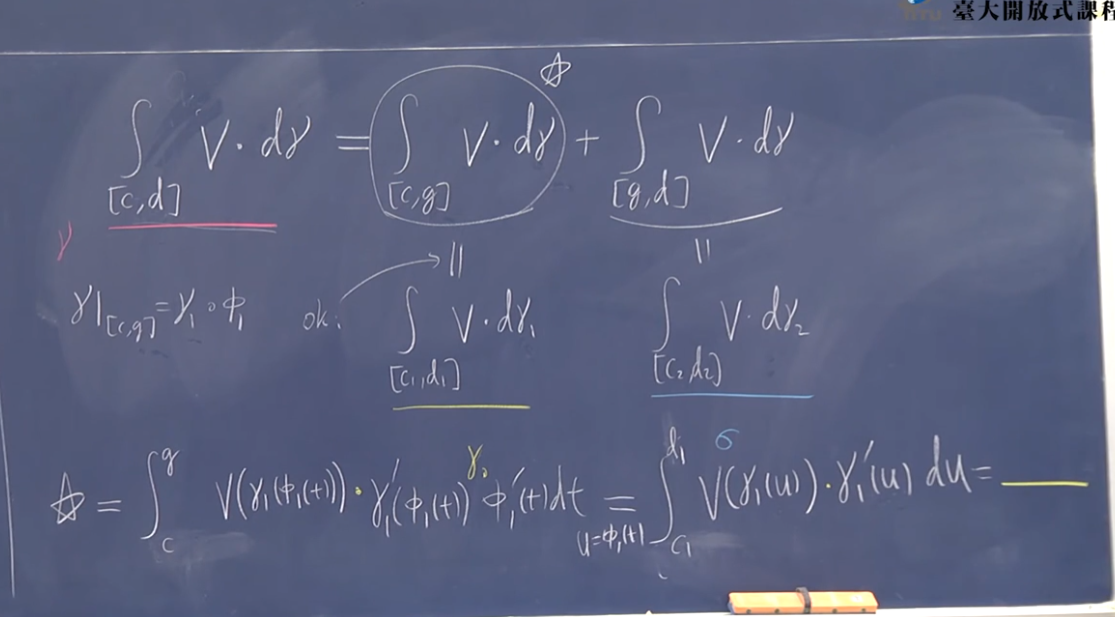 臺大開放式課程
☆
∫_{[c,d]} V · dγ = ∫_{[c,g]} V · dγ + ∫_{[g,d]} V · dγ
γ || ||
γ|_{[c,g]} = γ₁ ∘ φ₁ ok: ∫_{[c₁,d₁]} V · dγ₁ ∫_{[c₂,d₂]} V · dγ₂
γ₀ σ
☆ = ∫_c^g V(γ₁(φ₁(t))) · γ₁′(φ₁(t)) φ₁′(t)dt =_{u=φ₁(t)} ∫_{c₁}^{d₁} V(γ₁(u)) · γ₁′(u) du = ____